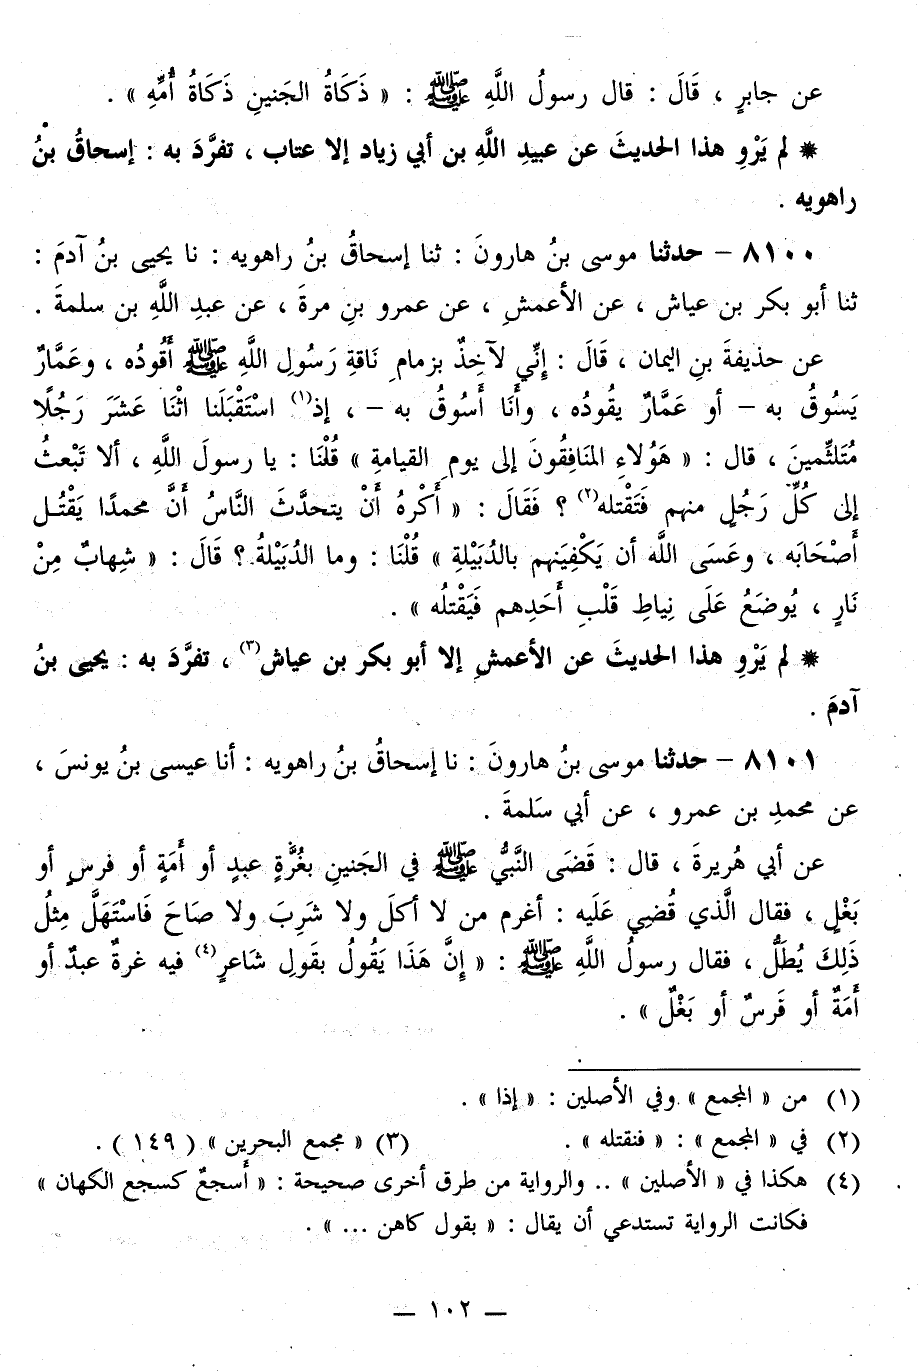 عن جابرٍ ، قَالَ : قال رسولُ اللَّهِ ﷺ : « ذَكَاةُ الجَنينِ ذَكَاةُ أُمِّهِ » .
* لم يَرْوِ هذا الحديثَ عن عبيدِ اللَّهِ بن أبي زياد إلا عتاب ، تفرَّدَ به : إسحاقُ بنُ
راهويه .
٨١٠٠ - حدثنا موسى بنُ هارونَ : ثنا إسحاقُ بنُ راهويه : نا يحيى بنُ آدمَ :
ثنا أبو بكر بن عياش ، عن الأعمشِ ، عن عمرو بنِ مرةَ ، عن عبدِ اللَّهِ بن سلمةَ .
عن حذيفةَ بنِ اليمان ، قَالَ : إِنِّي لآخِذٌ بزمامِ نَاقةِ رَسُولِ اللَّهِ ﷺ أَقُودُه ، وعَمَّارٌ
يَسوُقُ به - أو عَمَّارٌ يقُودُه ، وأَنَا أَسُوقُ به - ، إذ(١) اسْتَقبَلَنا اثْنَا عَشَرَ رَجُلًا
مُتَلثِّمينَ ، قال : « هَؤُلاءِ المنَافِقُونَ إلى يومِ القيامةِ » قُلْنَا : يا رسولَ اللَّهِ ، ألا تَبْعثُ
إلى كُلِّ رَجُلٍ منهم فَتَقْتله(٢) ؟ فَقَالَ : « أَكْرهُ أَنْ يتحدَّثَ النَّاسُ أَنَّ محمدًا يَقْتُل
أَصْحَابَه ، وعَسَى اللَّه أن يَكْفِيَنهم بالدُبَيْلةِ » قُلْنَا : وما الدُبَيْلةُ ؟ قَالَ : « شِهابٌ مِنْ
نَارٍ ، يُوضَعُ عَلَى نِياطِ قَلْبِ أَحَدِهم فَيَقْتلُه » .
* لم يَرْوِ هذا الحديثَ عن الأعمشِ إلا أبو بكر بن عياش(٣) ، تفرَّدَ به : يحيى بنُ
آدمَ .
٨١٠١ - حدثنا موسى بنُ هارونَ : نا إسحاقُ بنُ راهويه : أنا عيسى بنُ يونسَ ،
عن محمدِ بن عمرو ، عن أبي سَلمةَ .
عن أبي هُريرةَ ، قال : قَضَى النَّبيُّ ﷺ في الجَنينِ بغُرَّةٍ عبدٍ أو أَمَةٍ أو فرسٍ أو
بَغْلٍ ، فقال الَّذي قُضِي عَلَيه : أغرم من لا أكلَ ولا شرِبَ ولا صاحَ فَاسْتهَلَّ مِثلُ
ذَلِكَ يُطَلُّ ، فقال رسولُ اللَّهِ ﷺ : « إِنَّ هَذَا يَقُولُ بقَولِ شَاعرٍ(٤) فيه غرةٌ عبدٌ أو
أمَةٌ أو فَرسٌ أو بَغْلٌ » .
(١) من « المجمع » وفي الأصلين : « إذا » .
(٢) في « المجمع » : « فنقتله » . (٣) « مجمع البحرين » ( ١٤٩ ) .
(٤) هكذا في « الأصلين » .. والرواية من طرق أخرى صحيحة : « أسجعٌ كسجع الكهان »
فكانت الرواية تستدعي أن يقال : « بقول كاهن ... » .
— ١٠٢ —